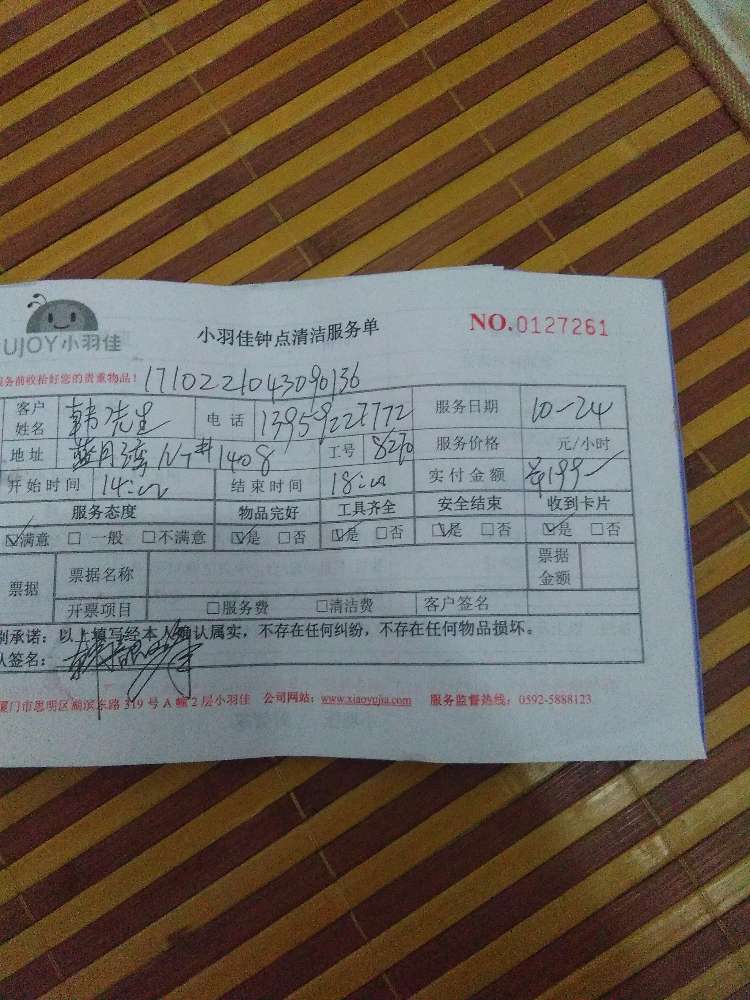 UJOY小羽佳
小羽佳钟点清洁服务单
NO.0127261
务前收拾好您的贵重物品! 1710221043090136
客户姓名 韩先生 电话 13959227772 服务日期 10-24
地址 蓝月湾 1408 工号 8270 服务价格 元/小时
开始时间 14:00 结束时间 18:00 实付金额 199
服务态度 物品完好 工具齐全 安全结束 收到卡片
☑满意 □ 一般 □不满意 ☑是 □否 ☑是 □否 ☑是 □否 ☑是 □否
票据 票据名称 票据金额
开票项目 □服务费 □清洁费 客户签名
承诺：以上填写经本人确认属实，不存在任何纠纷，不存在任何物品损坏。
人签名：
厦门市思明区湖滨东路 319 号 A 幢 2 层小羽佳 公司网站：www.xiaoyujia.com 服务监督热线：0592-5888123